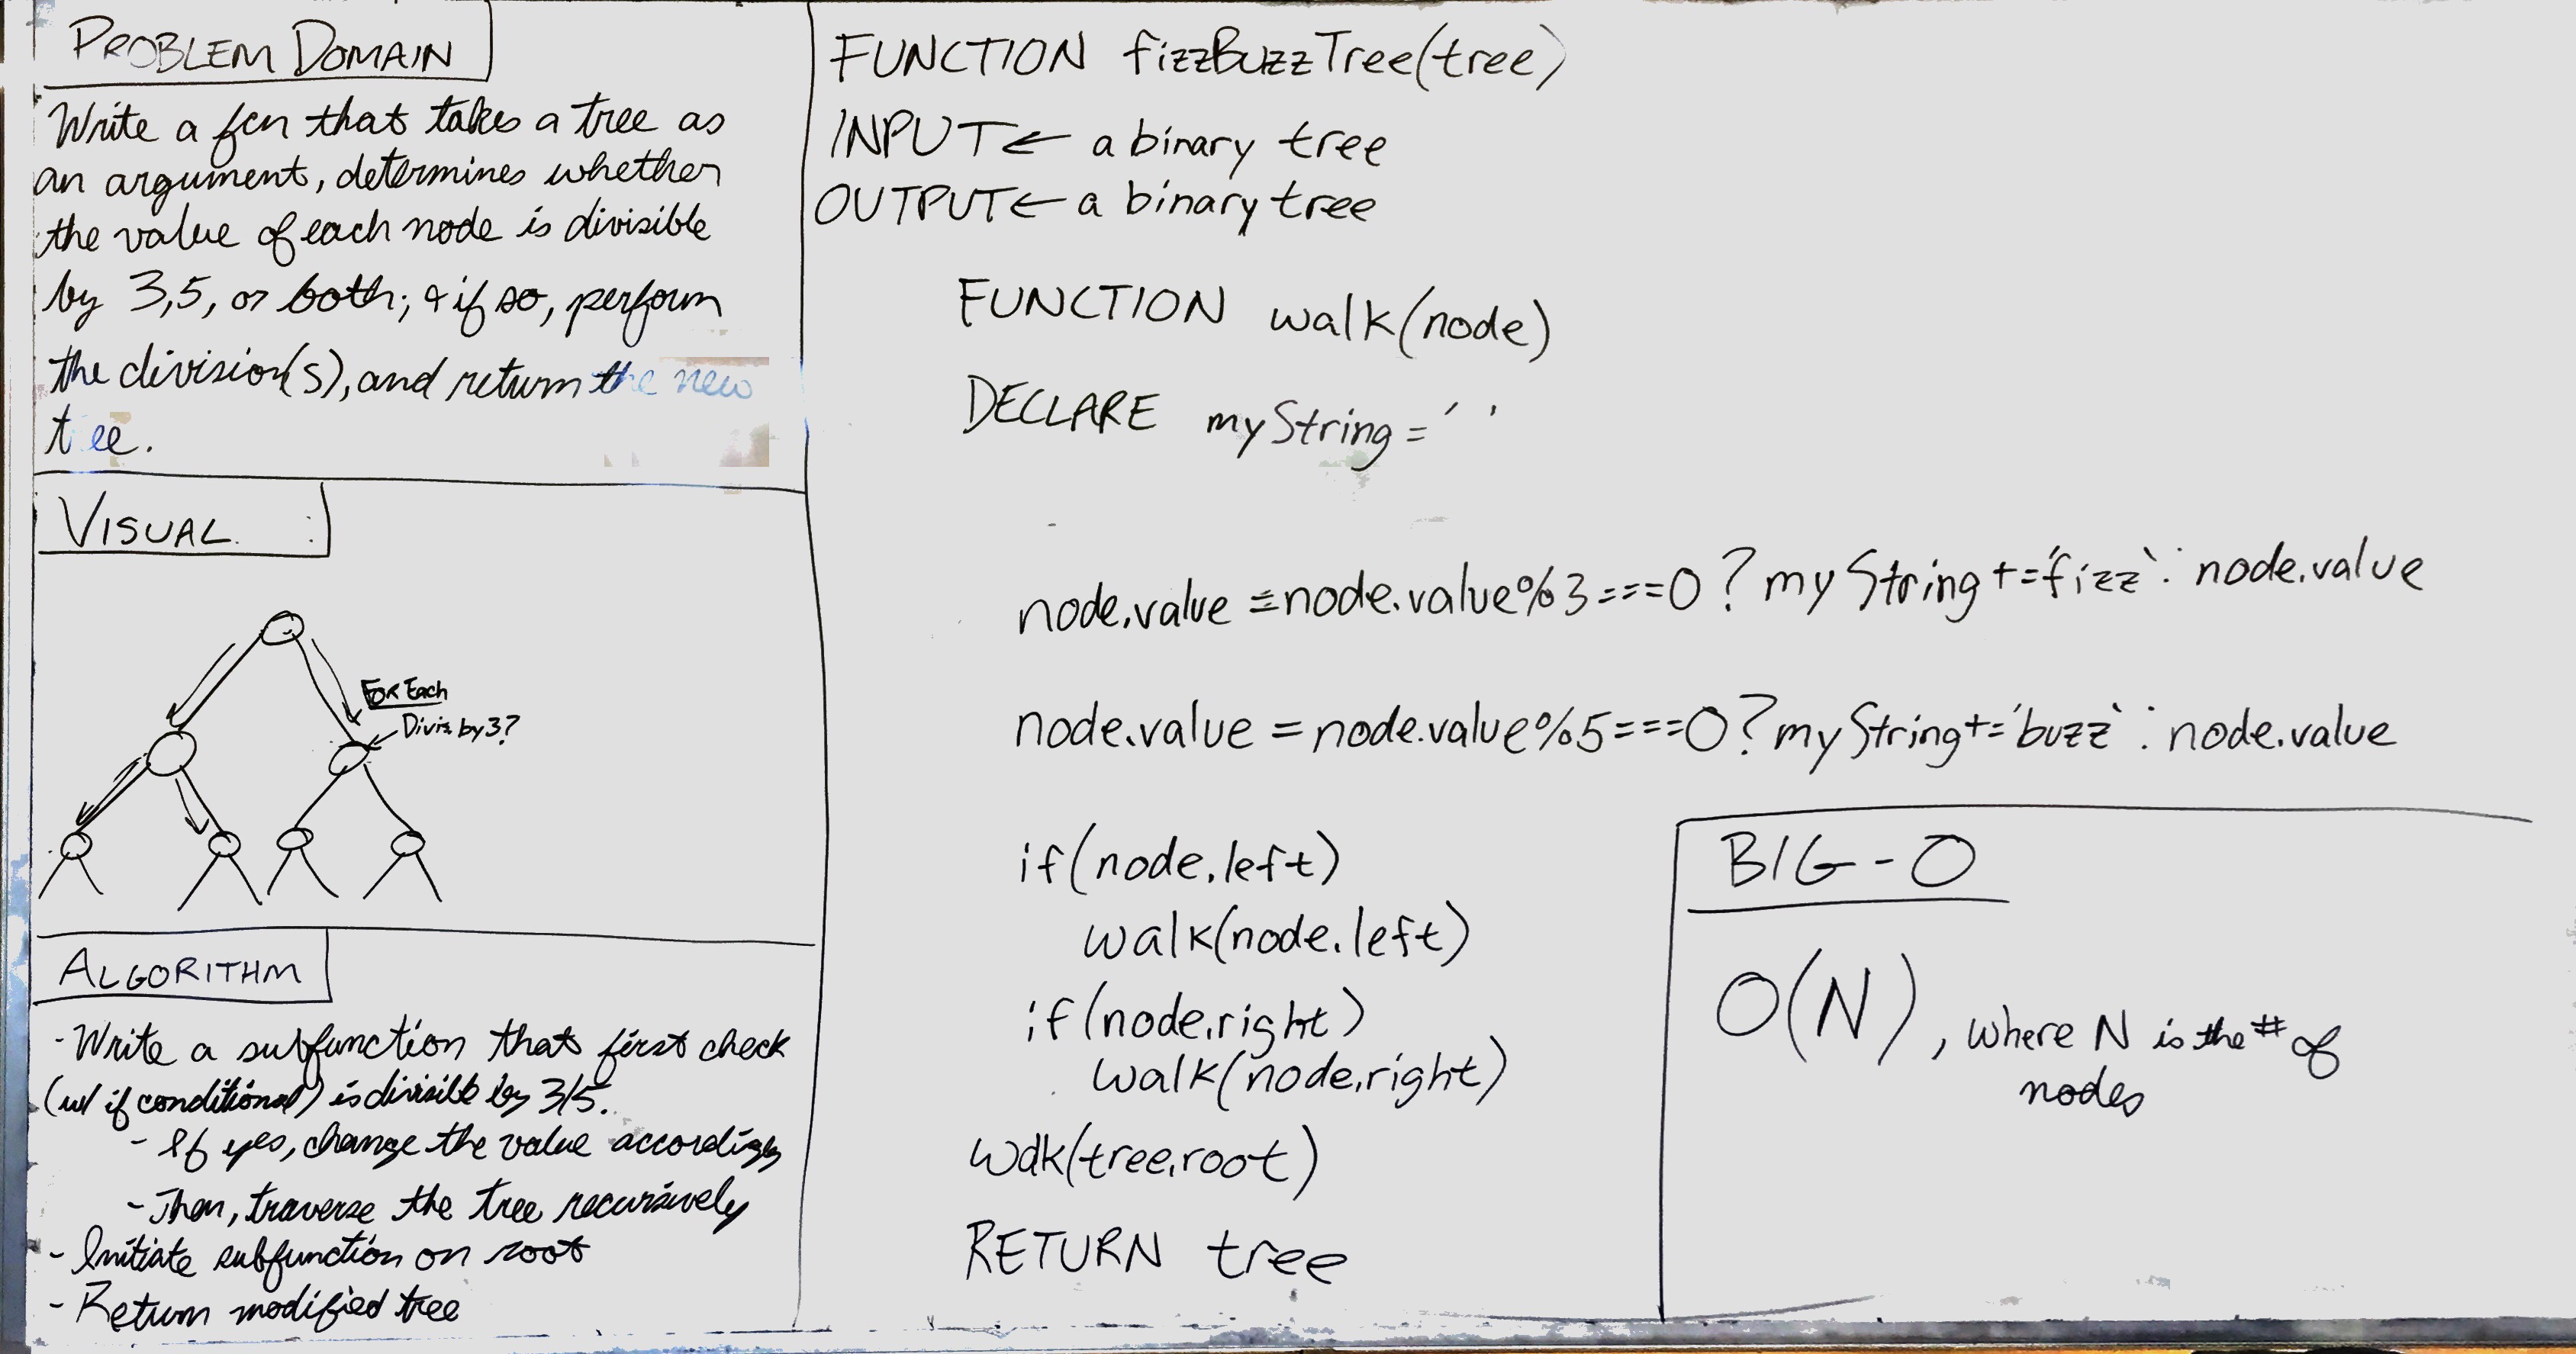 PROBLEM DOMAIN
Write a fcn that takes a tree as
an argument, determines whether
the value of each node is divisible
by 3,5, or both; & if so, perform
the division(s), and return the new
t ee.
VISUAL
For Each
Divis. by 3?
ALGORITHM
- Write a subfunction that first check
(w/ if conditional) is divisible by 3/5.
- If yes, change the value accordingly
- Then, traverse the tree recursively
- Initiate subfunction on root
- Return modified tree
FUNCTION fizzBuzzTree(tree)
INPUT ← a binary tree
OUTPUT ← a binary tree
FUNCTION walk(node)
DECLARE myString = ' '
node.value = node.value % 3 === 0 ? myString += 'fizz' : node.value
node.value = node.value % 5 === 0 ? myString += 'buzz' : node.value
if(node.left)
walk(node.left)
if(node.right)
walk(node.right)
walk(tree.root)
RETURN tree
BIG-O
O(N), where N is the # of
nodes